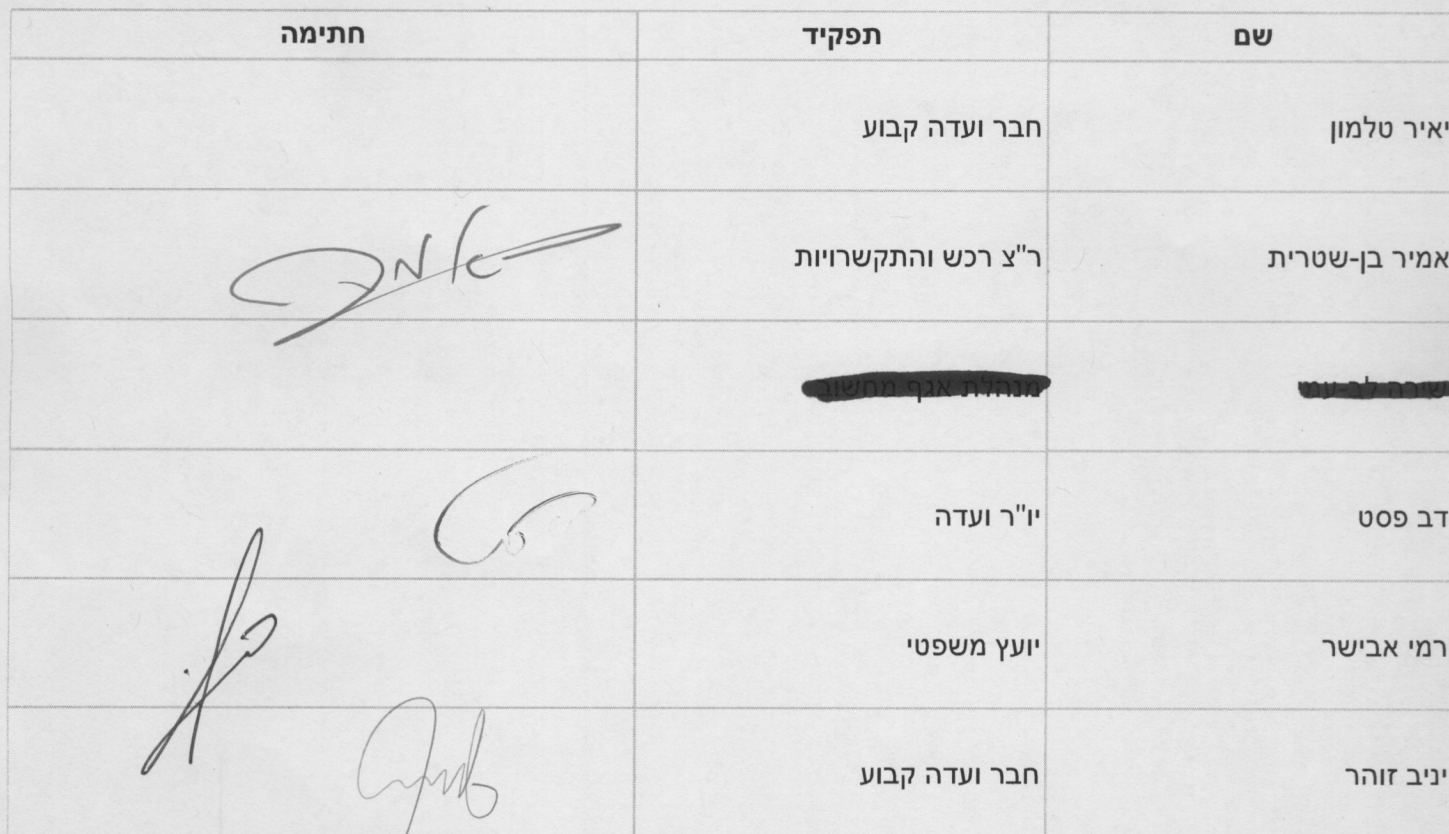 שם תפקיד חתימה
יאיר טלמון חבר ועדה קבוע
אמיר בן-שטרית ר"צ רכש והתקשרויות
שירה לב-עמי מנהלת אגף מחשוב
דב פסט יו"ר ועדה
רמי אבישר יועץ משפטי
יניב זוהר חבר ועדה קבוע